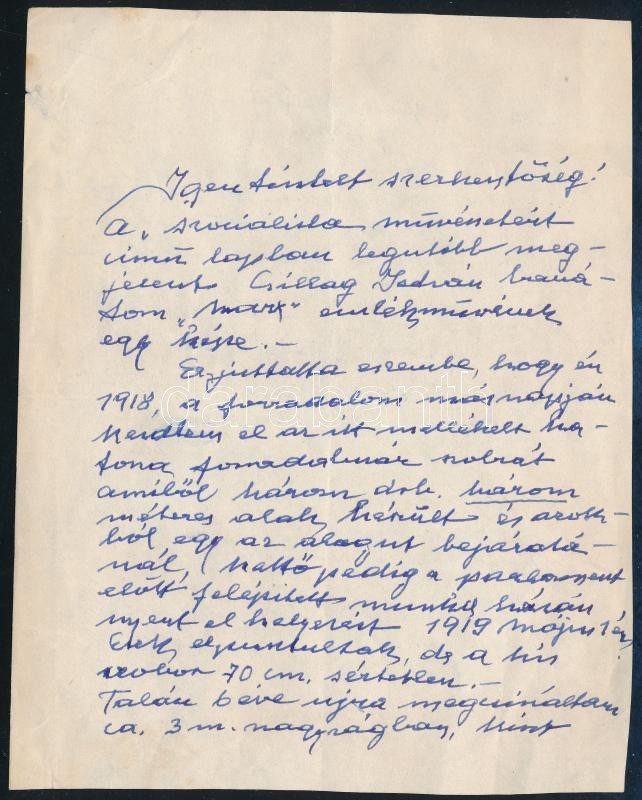 Igen tisztelt szerkesztőség!
A „szocialista művészetért
című lapban legutóbb meg-
jelent Csillag István bará-
tom „Marx" emlékművének
egy képe.-
Ez juttatta eszembe, hogy én
1918, a forradalom másnapján
kezdtem el az itt mellékelt ka-
tona forradalmár szobrát
amiből három drb. három
méteres alak készült és azok-
ból egy az alagut bejáratá-
nál, kettő pedig a parlament
előtt felépitett munka házán
nyert el helyezést 1919 május 1én.
Ezek elpusztultak, de a kis
szobor 70 cm. sértetlen.-
Talán 6 éve ujra megcsináltam
ca. 3 m. nagyságban, mint
darabanth